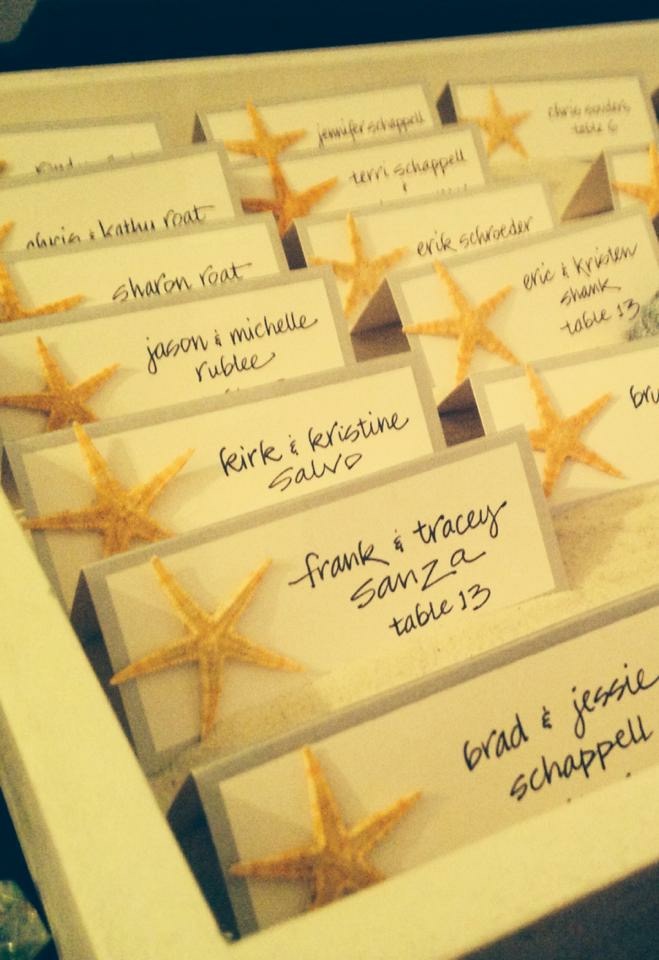 jennifer schappell
chris souders
table 6
terri schappell
chris & kathy roat
erik schroeder
sharon roat
eric & kristen
shank
table 13
jason & michelle
rublee
kirk & kristine
salvo
frank & tracey
sanza
table 13
brad & jessie
schappell